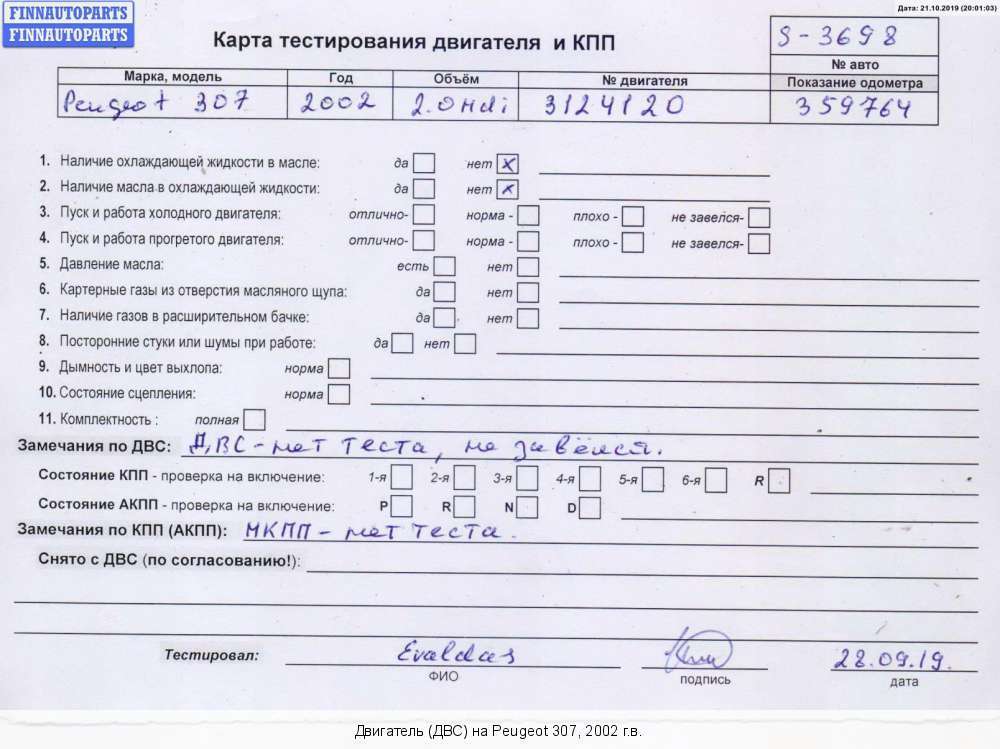 FINNAUTOPARTS
FINNAUTOPARTS
Дата: 21.10.2019 (20:01:03)
Карта тестирования двигателя и КПП
S-3698
№ авто
Марка, модель Год Объём № двигателя Показание одометра
Peugeot 307 2002 2.0Hdi 3124120 359764
1. Наличие охлаждающей жидкости в масле: да нет x
2. Наличие масла в охлаждающей жидкости: да нет x
3. Пуск и работа холодного двигателя: отлично- норма - плохо - не завелся-
4. Пуск и работа прогретого двигателя: отлично- норма - плохо - не завелся-
5. Давление масла: есть нет
6. Картерные газы из отверстия масляного щупа: да нет
7. Наличие газов в расширительном бачке: да нет
8. Посторонние стуки или шумы при работе: да нет
9. Дымность и цвет выхлопа: норма
10. Состояние сцепления: норма
11. Комплектность : полная
Замечания по ДВС: ДВС - нет теста, не завёлся.
Состояние КПП - проверка на включение: 1-я 2-я 3-я 4-я 5-я 6-я R
Состояние АКПП - проверка на включение: P R N D
Замечания по КПП (АКПП): МКПП - нет теста.
Снято с ДВС (по согласованию!):
Тестировал: Evaldas 28.09.19.
ФИО подпись дата
Двигатель (ДВС) на Peugeot 307, 2002 г.в.